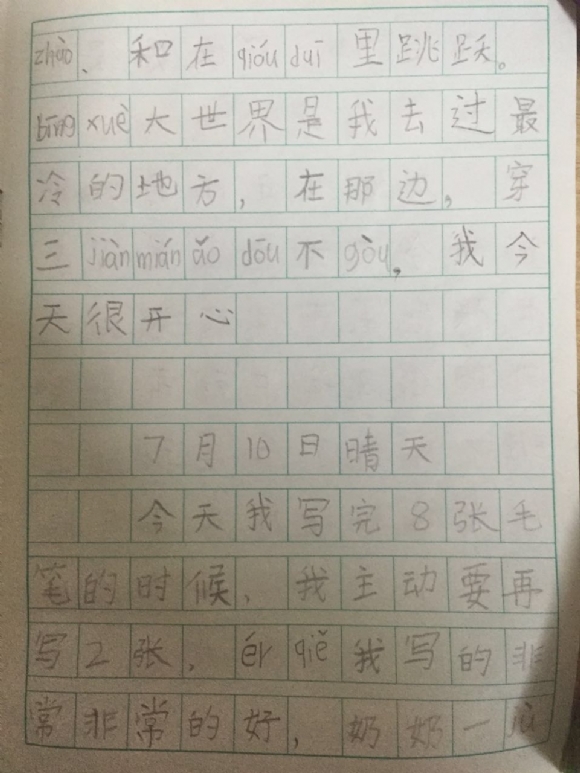 zhào、和在qiúduī里跳跃。
bīngxuě大世界是我去过最
冷的地方，在那边，穿
三jiànmiánǎodōu不gòu，我今
天很开心
7月10日晴天
今天我写完8张毛
笔的时候，我主动要再
写2张，érqiě我写的非
常非常的好，奶奶一jiù